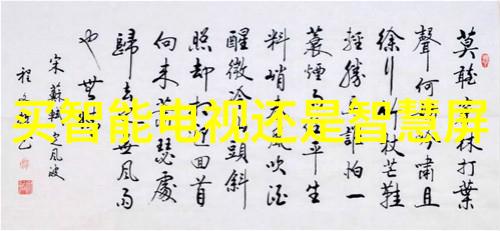 买智能电视还是智慧屏
莫聽穿林打葉
聲何妨吟嘯且
徐行竹杖芒鞋
輕勝馬誰怕一
蓑煙雨任平生
料峭春風吹酒
醒微冷山頭斜
照却相迎回首
向来蕭瑟處
歸去也無風雨
也無晴
宋蘇軾定風波